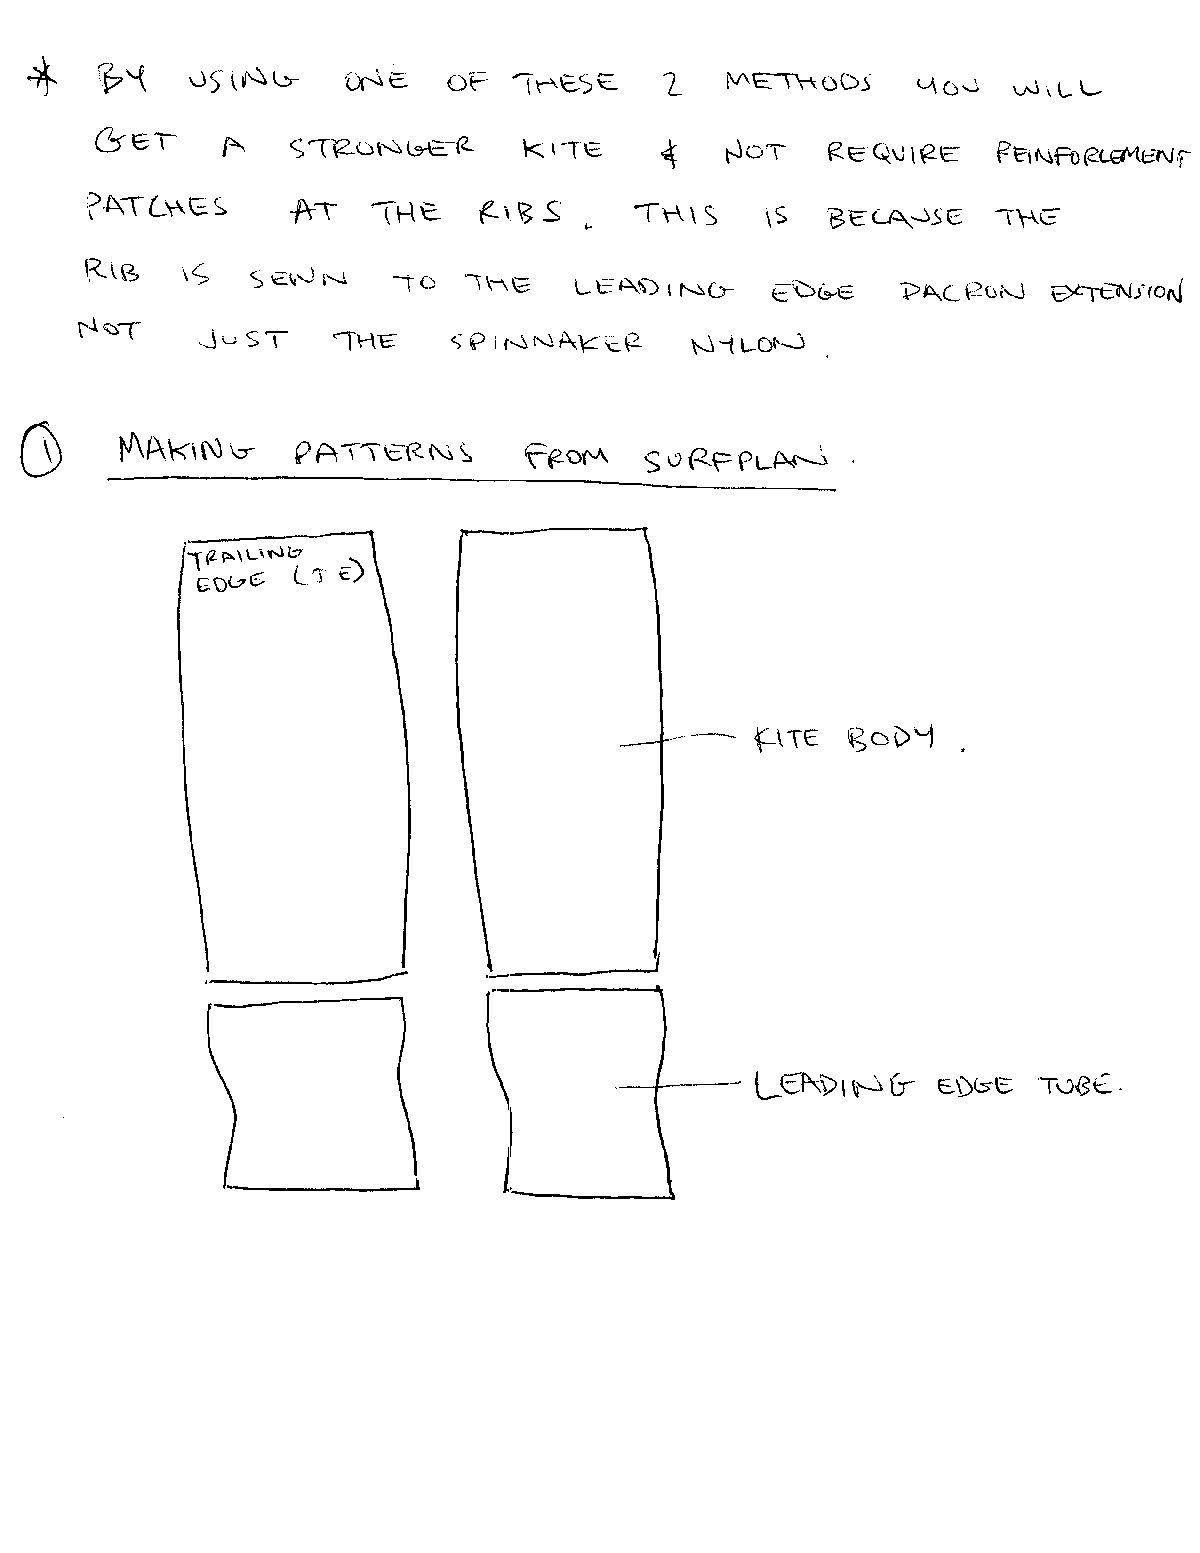 * BY USING ONE OF THESE 2 METHODS YOU WILL
GET A STRONGER KITE & NOT REQUIRE REINFORCEMENT
PATCHES AT THE RIBS. THIS IS BECAUSE THE
RIB IS SEWN TO THE LEADING EDGE DACRON EXTENSION
NOT JUST THE SPINNAKER NYLON.
① MAKING PATTERNS FROM SURFPLAN.
TRAILING
EDGE (TE)
KITE BODY.
LEADING EDGE TUBE.